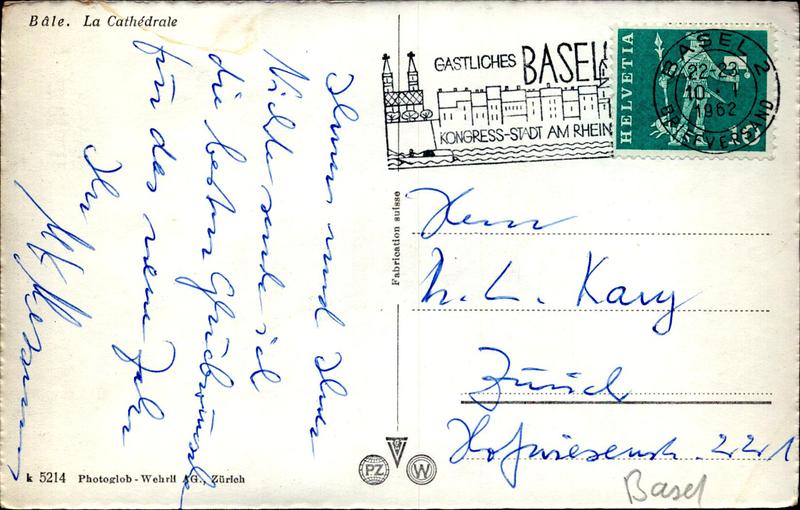 Bâle. La Cathédrale
Ihnen und Ihrer
Nichte sende ich
die besten Glückwünsche
für das neue Jahr
Ihr
GASTLICHES BASEL
KONGRESS-STADT AM RHEIN
HELVETIA
BASEL 2
22-23
10. I
1962
BRIEFVERSAND
Fabrication suisse
Herrn
L. Kary
Zürich
Hofwiesenstr. 221
Basel
k 5214 Photoglob-Wehrli AG., Zürich
PZ W